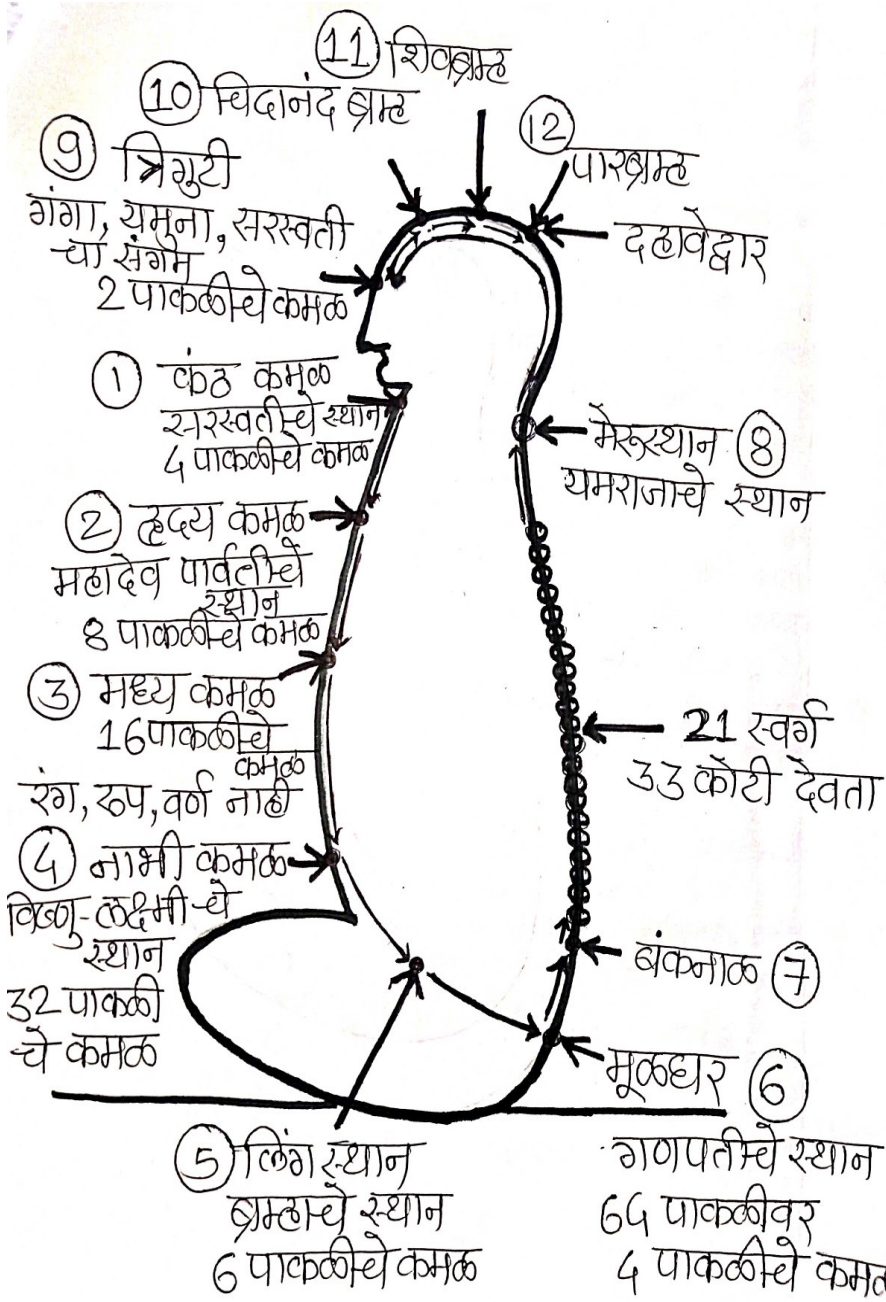 11 शिवब्रम्ह
10 चिदानंद ब्रम्ह
12
पारब्रम्ह
दहावेद्वार
9 त्रिगुटी
गंगा, यमुना, सरस्वती
चा संगम
2 पाकळीचे कमळ
1 कंठ कमळ
सरस्वतीचे स्थान
4 पाकळीचे कमळ
मेरूस्थान 8
यमराजाचे स्थान
2 हृदय कमळ
महादेव पार्वतीचे
स्थान
8 पाकळीचे कमळ
3 मध्य कमळ
16 पाकळीचे
कमळ
रंग, रूप, वर्ण नाही
21 स्वर्ग
33 कोटी देवता
4 नाभी कमळ
विष्णु-लक्ष्मीचे
स्थान
32 पाकळी
चे कमळ
बंकनाळ 7
मूळधर 6
गणपतीचे स्थान
64 पाकळीवर
4 पाकळीचे कमळ
5 लिंग स्थान
ब्रम्हाचे स्थान
6 पाकळीचे कमळ